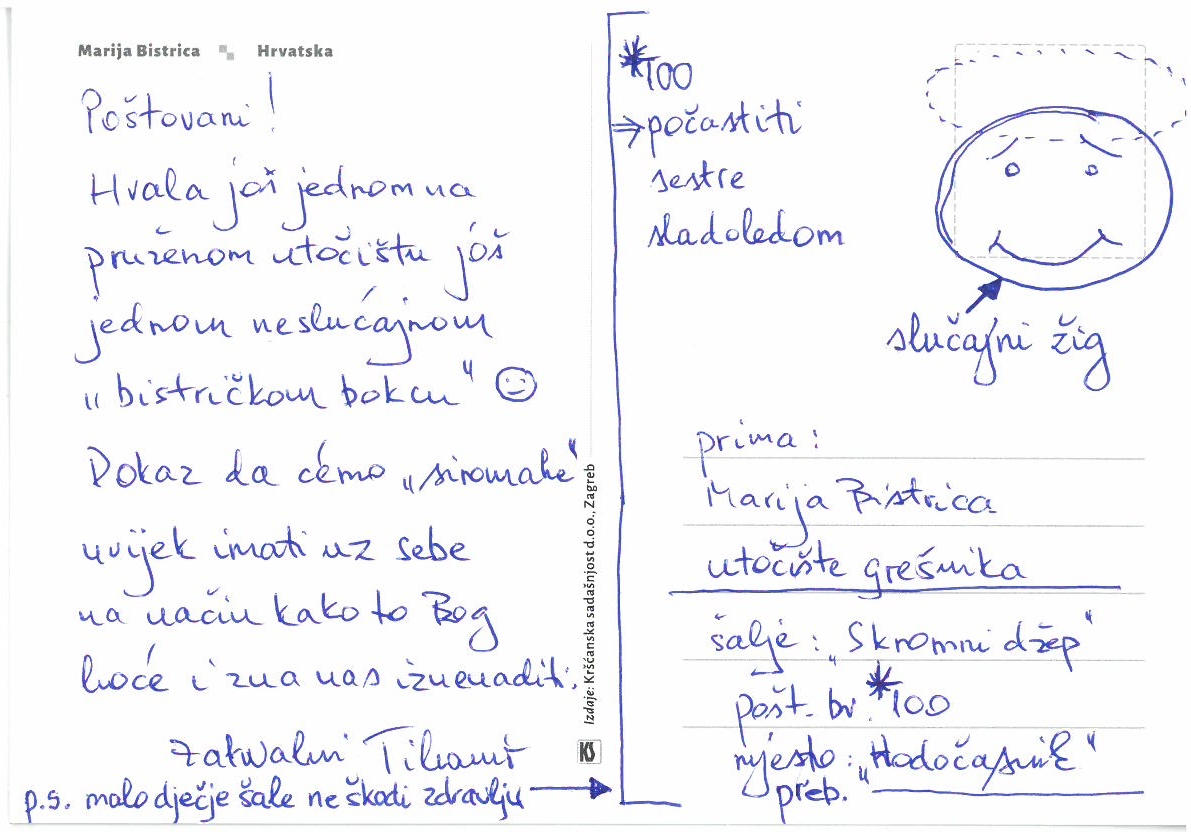 Marija Bistrica Hrvatska
Poštovani!
Hvala još jednom na
pruženom utočištu još
jednom neslućajnom
„bistričkom bokcu"
Dokaz da ćemo „siromahe"
uvijek imati uz sebe
na način kako to Bog
hoće i zna nas iznenaditi.
zahvalni Tihamir
p.s. malo dječje šale ne škodi zdravlju
Izdaje: Kršćanska sadašnjost d.o.o., Zagreb
KS
*100
⇒ počastiti
sestre
sladoledom
slučajni žig
prima:
Marija Bistrica
utočište grešnika
šalje: „Skromni džep"
pošt. br. *100
mjesto: „Hodočasnik"
preb.